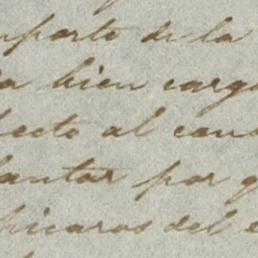 mporte de la
a bien carga
fecto al cono
lantar por q
hicaros del e